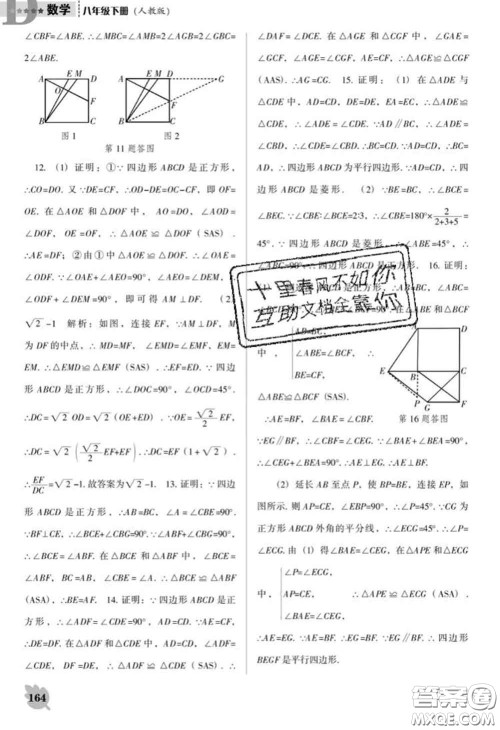 ★★★★★ 数学 八年级下册 (人教版)
∠CBF=∠ABE. ∴∠MBC=∠AMB=2∠AGB=2∠GBC=
2∠ABE.
图 1 图 2
第 11 题答图
12. (1) 证明：①∵四边形 ABCD 是正方形，
∴CO=DO. 又∵DE=CF，∴OD-DE=OC-CF，即 OF=
OE. 在△AOE 和△DOF 中， AO=DO，∠AOD=
∠DOF， OE =OF，∴△AOE≌△DOF (SAS) .
∴AE=DF；②由①中△AOE≌△DOF. ∴∠OAE=
∠ODF. ∵∠OAE+∠AEO=90°，∠AEO=∠DEM，
∴∠ODF+∠DEM =90°，即可得 AM⊥DF. (2)
√2 -1 解析：如图，连接 EF，∵AM⊥DF，M
为 DF 的中点，∴MD=MF， ∠EMD=∠EMF=90°，
∴△EMD≌△EMF (SAS) . ∴EF=ED. ∵四边
形 ABCD 是正方形，∴∠DOC=90°，∠OCD=45°.
∴DC=√2 OD=√2 (OE+ED) ∵OE=√2/2 EF，
∴DC=√2 (√2/2 EF+EF) ∴DC=EF(1+√2).
∴EF/DC=√2-1. 故答案为√2-1. 13. 证明：∵四
边形 ABCD 是正方形，∴AB=BC，∠A=∠CBE=90°.
∵BF⊥CE，∴∠BCE+∠CBG=90°. ∵∠ABF+∠CBG=90°.
∴∠BCE=∠ABF. 在△BCE 和△ABF 中，∠BCE=
∠ABF，BC=AB，∠CBE=∠A. ∴△BCE≌△ABF
(ASA)，∴BE=AF. 14. 证明：∵四边形 ABCD 是正
方形，∴∠ADF=∠CDE=90°，AD=CD. ∵AE=CF，
∴DE=DF. 在△ADF 和△CDE 中，AD=CD，∠ADF=
∠CDE， DF =DE，∴△ADF≌△CDE (SAS). ∴
∠DAF=∠DCE. 在△AGE 和△CGF 中，∠GAE=
∠GCF，∠AGE=∠CGF，AE=CF，∴△AGE≌△CGF
(AAS). ∴AG=CG. 15. 证明：(1) 在△ADE 与
△CDE 中，AD=CD，DE=DE，EA=EC，∴△ADE≌
△CDE，∴∠ADE=∠CDE. ∵AD∥BC，∴∠ADE=
∠CBD，∴∠CDE=∠CBD. ∴BC=CD. ∵AD=CD，∴BC=
AD，∴四边形 ABCD 为平行四边形. ∵AD=CD，∴四
边形 ABCD 是菱形. (2) ∵BE=BC，∴∠BCE=
∠BEC. ∵∠CBE:∠BCE=2:3，∴∠CBE=180°×2/(2+3+5)=
45°. ∵四边形 ABCD 是菱形，∴∠ABE=45°.
∴∠ABC=90°. ∴四边形 ABCD 是正方形. 16. 证明：
中， ∠ABE=∠BCF，∴
BE=CF，
△ABE≌△BCF (SAS) .
第 16 题答图
∴AE=BF，∠BAE=∠CBF.
∵EG∥BF，∴∠CBF=∠CEG. ∵∠BAE+∠BEA=90°，
∴∠CEG+∠BEA=90°. ∴AE⊥EG. ∴AE⊥BF.
(2) 延长 AB 至点 P，使 BP=BE，连接 EP，如
图所示. 则 AP=CE，∠EBP=90°，∴∠P=45°. ∵CG 为
正方形 ABCD 外角的平分线，∴∠ECG=45°，∴∠P=
∠ECG. 由 (1) 得∠BAE=∠CEG，在△APE 和△ECG
∠P=∠ECG，
中， AP=CE， ∴△APE≌△ECG (ASA) .
∠BAE=∠CEG，
∴AE=EG. ∵AE=BF，∴EG=BF. ∵EG∥BF，∴四边形
BEGF 是平行四边形.
十里春风不如你
互助文档全靠你
164
答案圈
MXQE.COM